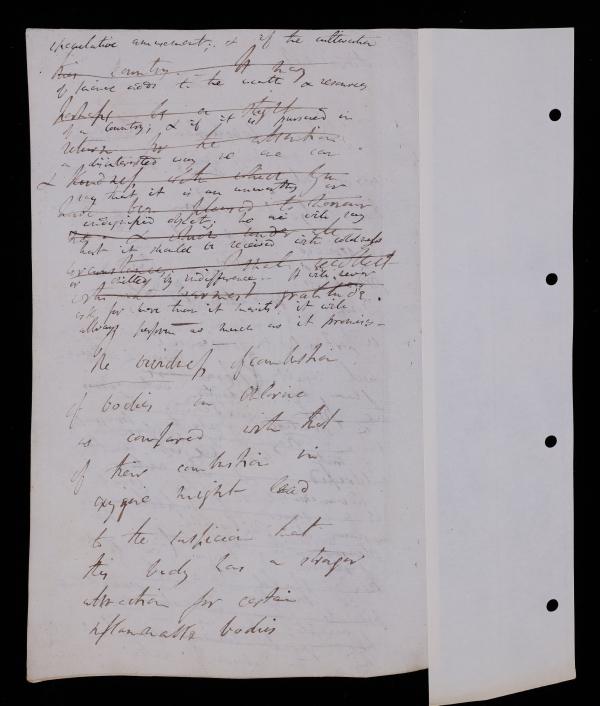 speculative amusement; & if the cultivation
this country. It may
of science adds to the wealth & resources
perhaps be a slight
of a country; & if it is pursued in
return for the attention
a disinterested way no one can
& kindness with which you
say that it is an unworthy or
have been pleased to honour
undignified object; no one will say
me &
that it should be received with coldness
circumstances I shall recollect
or chilled by indifference. It will never
with the warmest gratitude.
ask for more than it merits, it will
always perform as much as it promises. –
The vividness of combustion
of bodies in Chlorine
as compared with that
of their combustion in
oxygene might lead
to the suspicion that
this body has a stronger
attraction for certain
inflammable bodies